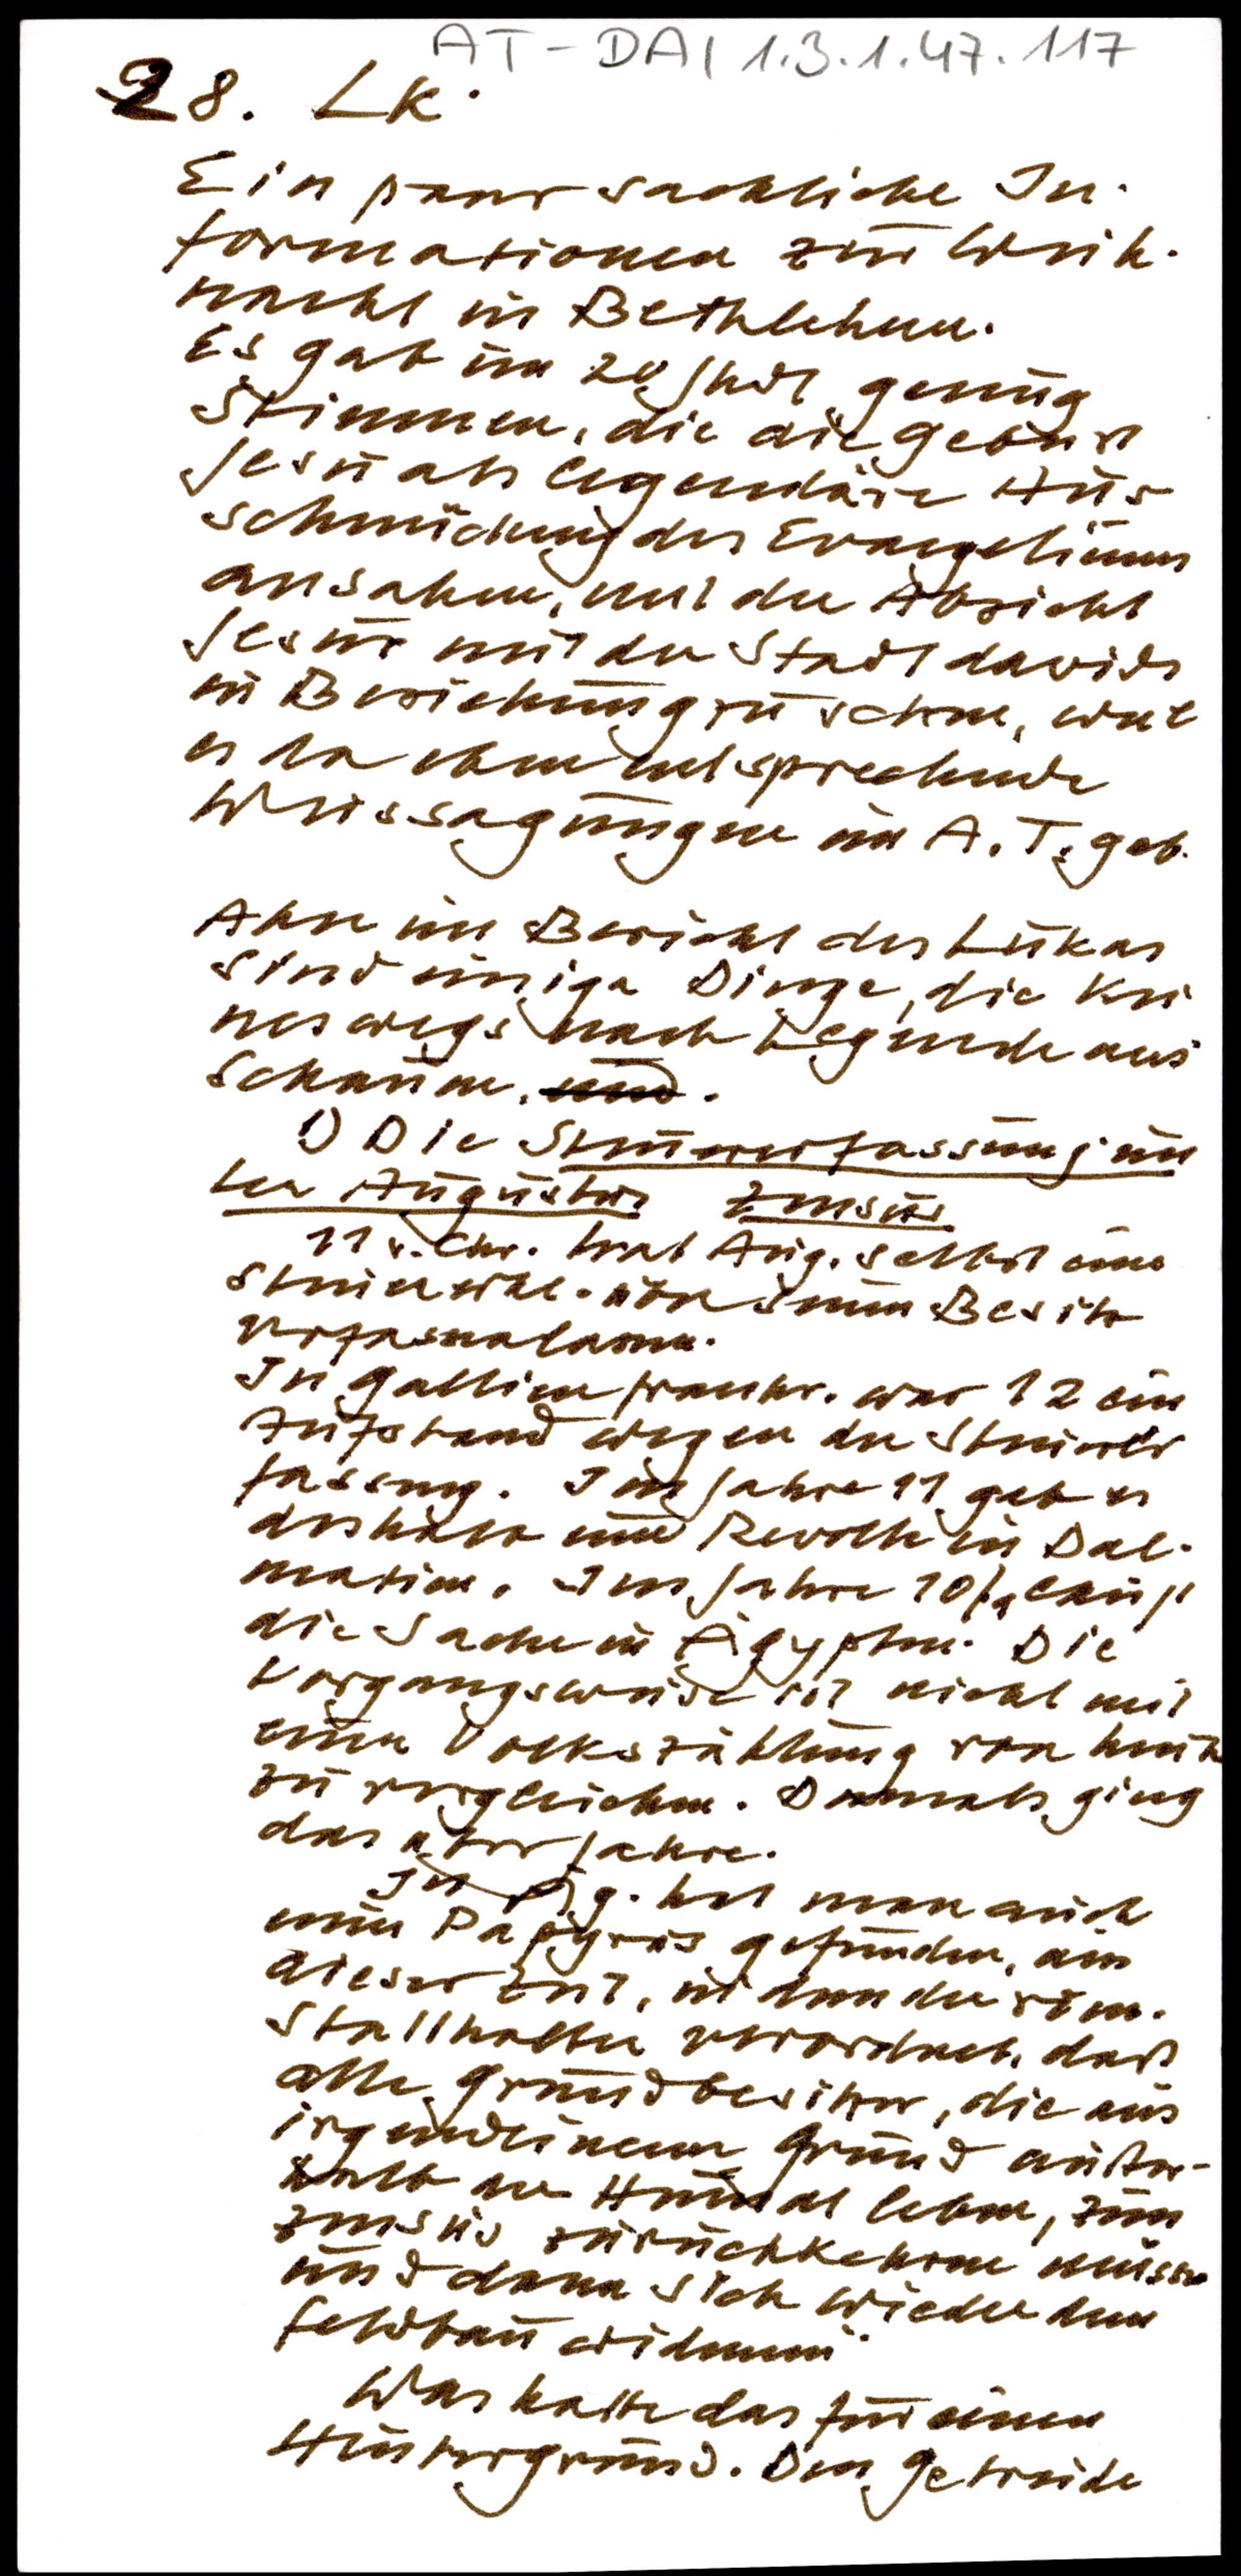 AT-DAI 1.3.1.47.117
28. Lk.
Ein paar sachliche In-
formationen zur Weih-
nacht in Bethlehem.
Es gab im 20 Jhdt genug
Stimmen, die die Geburt
Jesu als legendäre Aus
schmückung des Evangeliums
ansahen, mit der Absicht
Jesus mit der Stadt Davids
in Beziehung zu setzen, weil
es da eben entsprechende
Weissagungen im A.T. gab.
Aber im Bericht des Lukas
sind einige Dinge, die kei
neswegs nach Legende aus
schauen.
1) Die Steuererfassung un
ter Augustus Zensus
11 v. Chr. hat Aug. selbst eine
Steuererkl. über seinen Besitz
In Gallien war 12 ein
Aufstand wegen der Steuerer
fassung. Im Jahre 11 gab es
deshalb eine Revolte in Dal-
matien. Im Jahre 10/9 läuft
die Sache in Ägypten. Die
Vorgangsweise ist nicht mit
einer Volkszählung von heute
zu vergleichen. Damals ging
das über Jahre.
In Äg. hat man auch
einen Papyrus gefunden, aus
dieser Zeit, in dem der röm.
Statthalter verordnet, daß
alle Grundbesitzer, die aus
irgendeinem Grund außer-
halb der Heimat leben, zum
Zensus zurückkehren müssen
und dann sich wieder dem
Feldbau widmen.
Was hatte das für einen
Hintergrund. Den Getreide